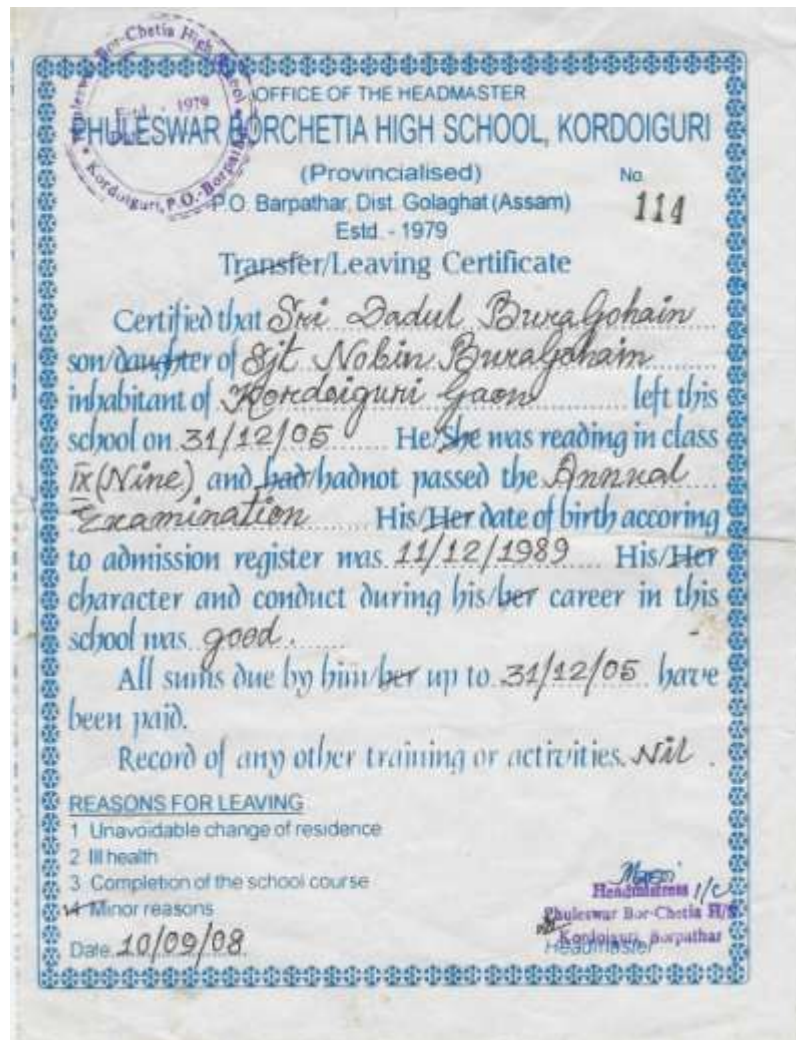 Phuleswar Bor-Chetia High School
Estd. - 1979
Kordoiguri, P.O. Borpathar
OFFICE OF THE HEADMASTER
PHULESWAR BORCHETIA HIGH SCHOOL, KORDOIGURI
(Provincialised)
No.
P.O. Barpathar, Dist. Golaghat (Assam)
114
Estd. - 1979
Transfer/Leaving Certificate
Certified that Sri Dadul BuraGohain
son/daughter of Sjt Nobin BuraGohain
inhabitant of Kordoiguri Gaon left this
school on 31/12/05 He/She was reading in class
IX (Nine) and had/hadnot passed the Annual
Examination His/Her date of birth accoring
to admission register was 11/12/1989 His/Her
character and conduct during his/her career in this
school was good.
All sums due by him/her up to 31/12/05 have
been paid.
Record of any other training or activities. Nil.
REASONS FOR LEAVING
1 Unavoidable change of residence
2 Ill health
3 Completion of the school course
4 Minor reasons
Headmistress I/C
Phuleswar Bor-Chetia H/S
Kordoiguri, Borpathar
Date 10/09/08
Headmaster